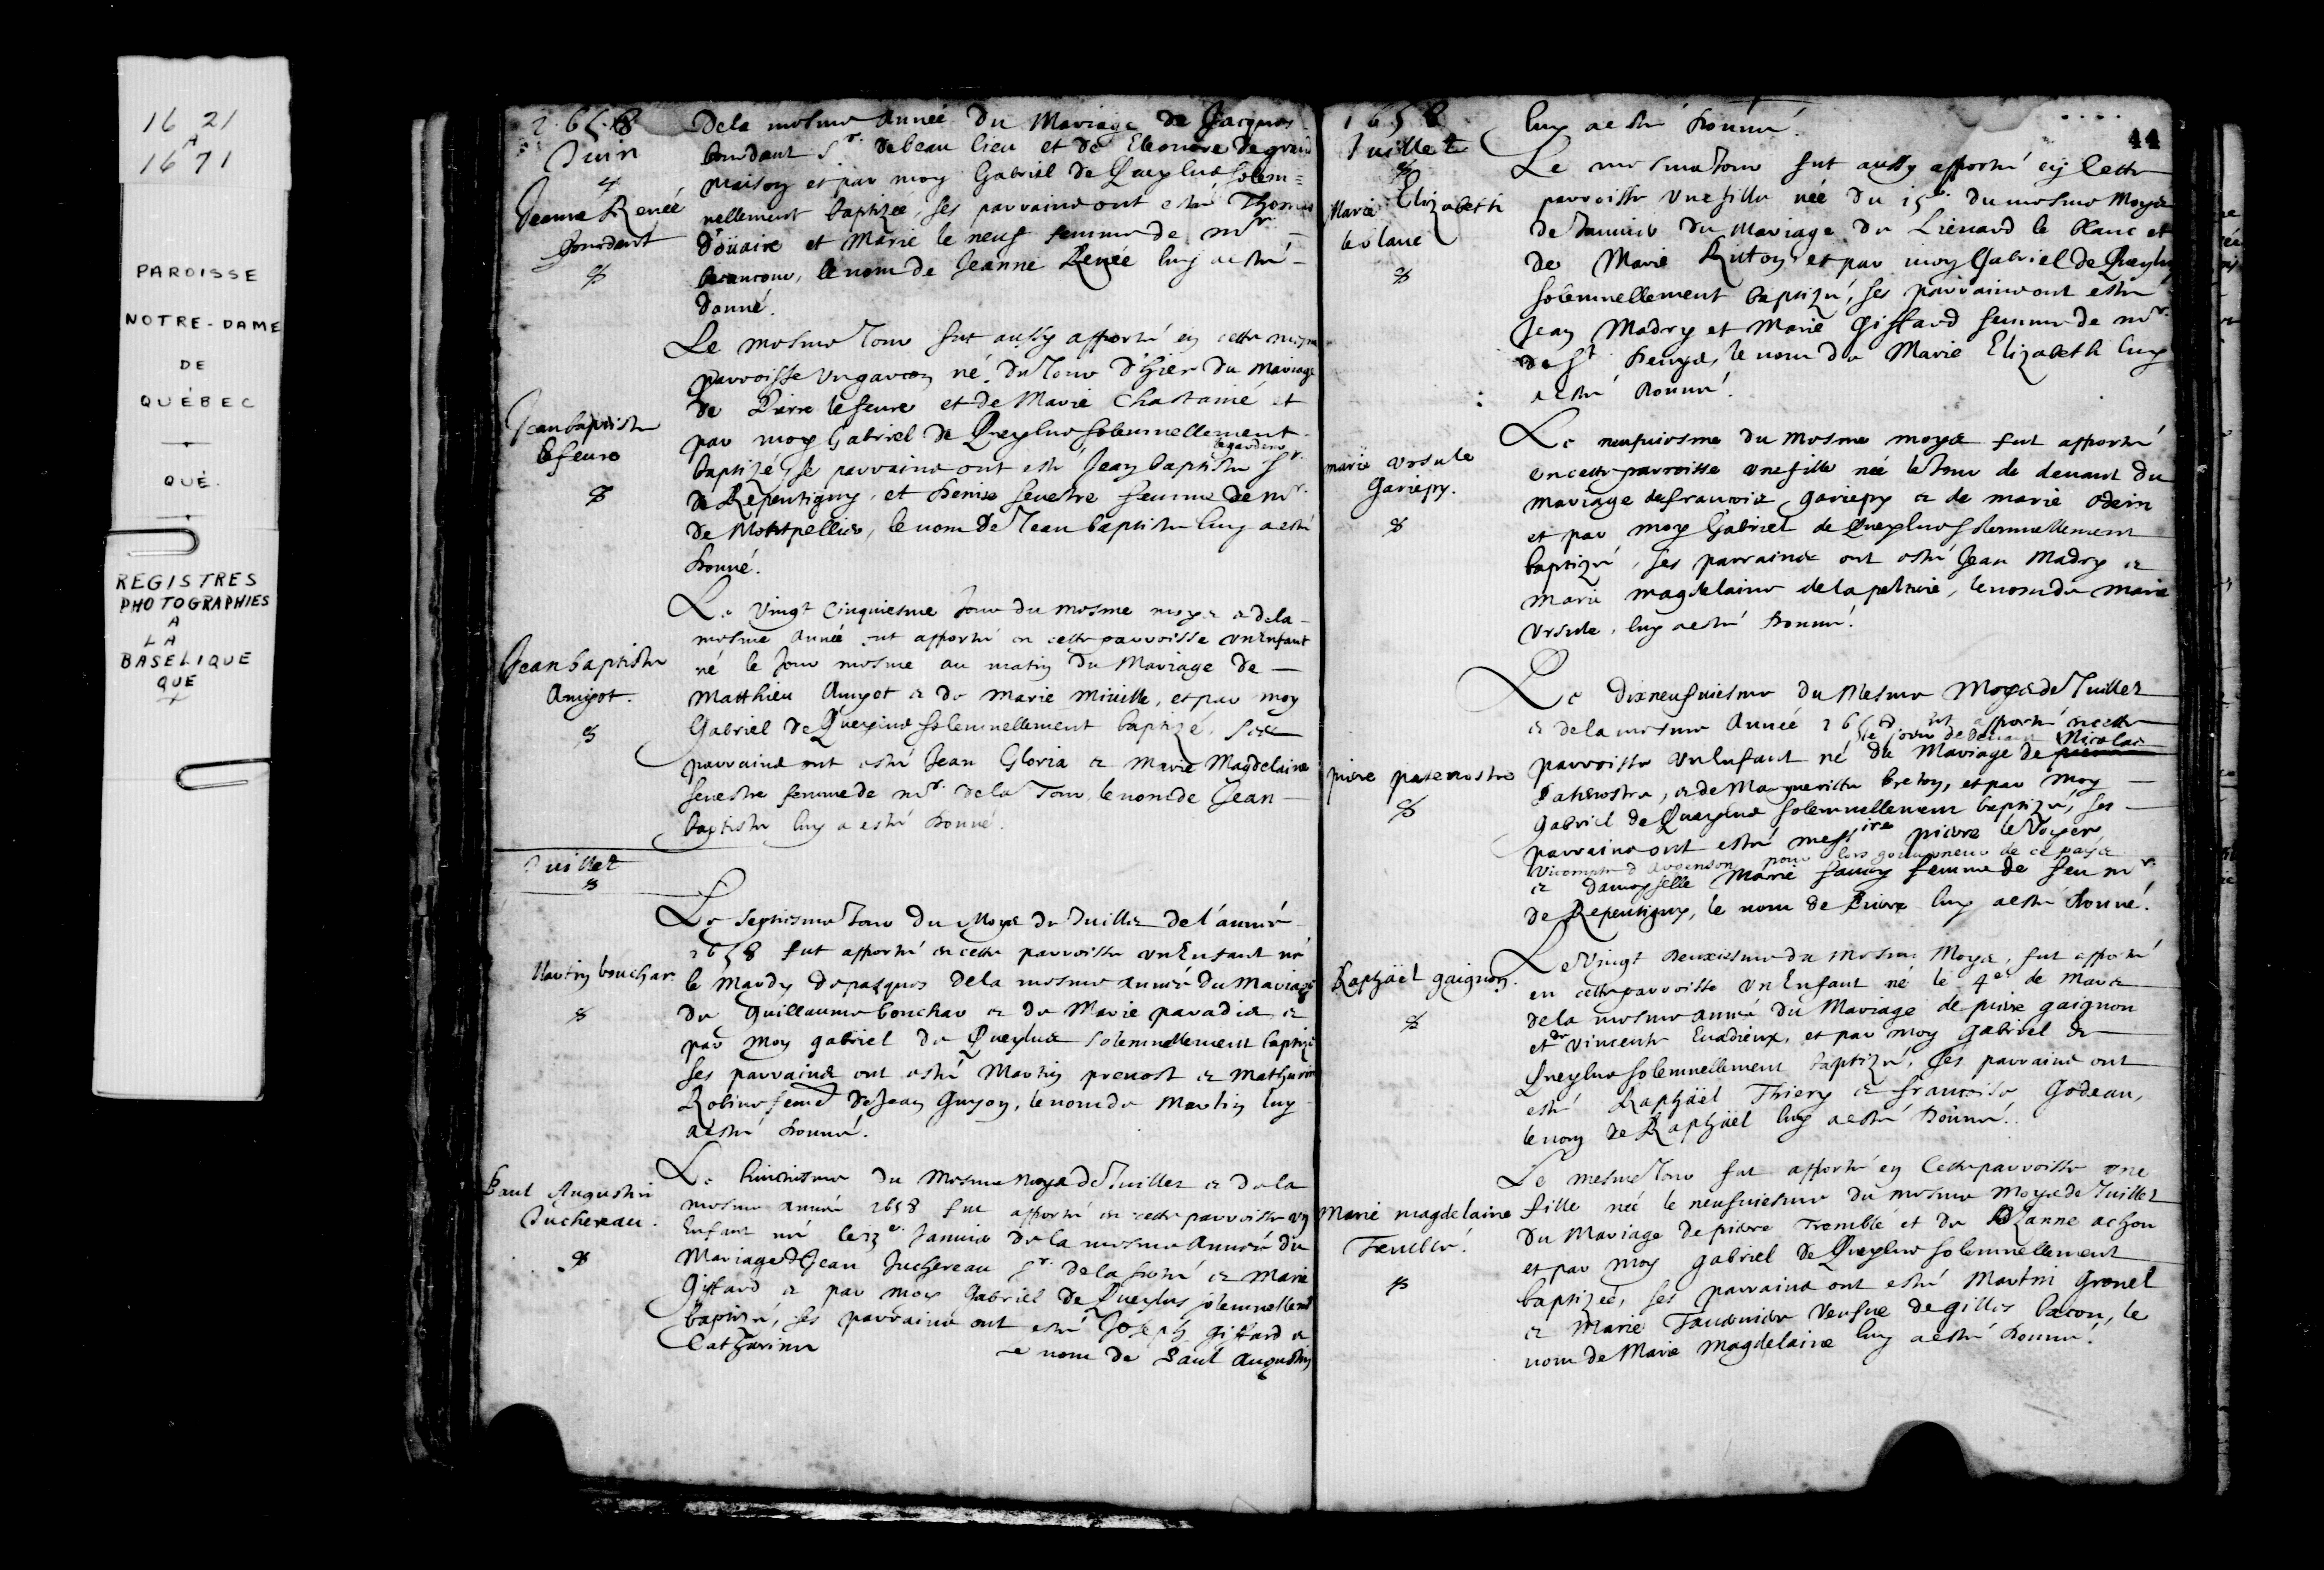 16 21
A
16 71
PAROISSE
NOTRE-DAME
DE
QUÉBEC
QUÉ.
REGISTRES
PHOTOGRAPHIES
A
LA
BASELIQUE
QUE
1658
Juin
Jeanne Renée
Jourdent
De la mesme Année Du Mariage de Jacques
Sr. de beau lieu et de Eleonore de grand
maison et par moy Gabriel de Queylus solem=
nellement baptizée, ses parrains ont esté Thomas
Doüaire et Marie le neuf femme de mr.
le nom de Jeanne Renée luy a esté
Donné.
Jean baptiste
lefeure
Le mesme Jour fut aussy apporté en cette mesme
parroisse un garcon né du Jour d'hier du Mariage
de Pierre lefeure et de Marie Chastainé et
par moy Gabriel de Queylus solemnellement
baptizé, se parrains ont esté Jean baptiste legardeur Sr.
de Repentigny, et Denise Seuestre femme de mr.
de Montpellier, le nom de Jean baptiste luy a esté
Donné.
Jean baptiste
Amyot.
Le vingt cinquiesme Jour du mesme moys & de la
mesme année fut apporté en cette parroisse un Enfant
né le Jour mesme au matin du Mariage de
Matthieu Amyot & de Marie Miuille, et par moy
Gabriel de Queylus solemnellement baptizé. Ses
parrains ont esté Jean Gloria & Marie Magdelaine
Seuestre femme de mr. de la Tour, le nom de Jean
baptiste luy a esté Donné.
Juillet
Martin bouchar.
Le septiesme Jour du Moys de Juillet de l'année
1658 fut apporté en cette parroisse un Enfant né
le Mardy de pasques de la mesme année du Mariage
de Guillaume bouchar & de Marie paradis &
par moy gabriel de Queylus solemnellement baptizé
ses parrains ont esté Martin preuost & Mathurine
Robine feme de Jean Guyon, le nom de Martin luy
a esté Donné.
Paul Augustin
Juchereau.
Le huictiesme du Mesme moys de Juillet & de la
mesme année 1658 fut apporté en cette parroisse un
Enfant né le 13e. Januier de la mesme Année du
Mariage de Jean Juchereau Sr. de la ferté & Marie
Giffard & par moy Gabriel de Queylus solemnellemt
baptizé, ses parrains ont esté Joseph Giffard &
Catherine le nom de Paul Augustin
1658
Juillet
44
luy a esté Donné.
Marie Elizabeth
le blanc
Le mesme Jour fut aussy apporté en cette
parroisse une fille née du 15e du mesme Moys
de Januier du Mariage de Lienard le blanc et
de Marie Riton et par moy Gabriel de Queylus
solemnellement baptizé, ses parrains ont esté
Jean Madry et Marie Giffard femme de mr.
de St. Denys, le nom de Marie Elizabeth luy
a esté Donné.
marie Vrsule
Gariepy.
Le neufuiesme du mesme moys fut apporté
en cette parroisse une fille née le Jour de deuant du
mariage de francois gariepy & de marie odein
et par moy Gabriel de Queylus solemnellement
baptizé, ses parrains ont esté Jean Madry &
marie magdelaine de la peltrie, le nom de marie
Vrsule, luy a esté Donné.
pierre patenostre
Le dixneufuiesme du Mesme Moys de Juillet
& de la mesme Année 1658 fut apporté en cette
parroisse un Enfant né le jour de deuant du Mariage de Nicolas
Patenostre, & de Marguerite breton, et par moy
Gabriel de Queylus solemnellement baptizé, ses
parrains ont esté messire pierre le Voyer
Vicomte d'Argenson pour lors gouuerneur de ce pays
& damoyselle Marie fauery femme de feu mr.
de Repentigny, le nom de Pierre luy a esté donné.
Raphäel gaignon.
Le Vingt deuxiesme du Mesme Moys, fut apporté
en cette parroisse un Enfant né le 4e de Mars
de la mesme année du Mariage de pierre gaignon
et de vincente Euadieux, et par moy gabriel de
Queylus solemnellement baptizé, ses parrains ont
esté Raphäel Thiery & francoise Godeau,
le nom de Raphäel luy a esté Donné.
Marie magdelaine
Tremblé.
Le mesme Jour fut apporté en Cette parroisse une
fille née le neufuiesme du mesme moys de Juillet
du Mariage de pierre Tremblé et de Ozanne achon
et par moy gabriel de Queylus solemnellement
baptizée, ses parrains ont esté Martin Grouuel
& Marie Tauernier Veufue de gilles bacon, le
nom de Marie magdelaine luy a esté Donné.